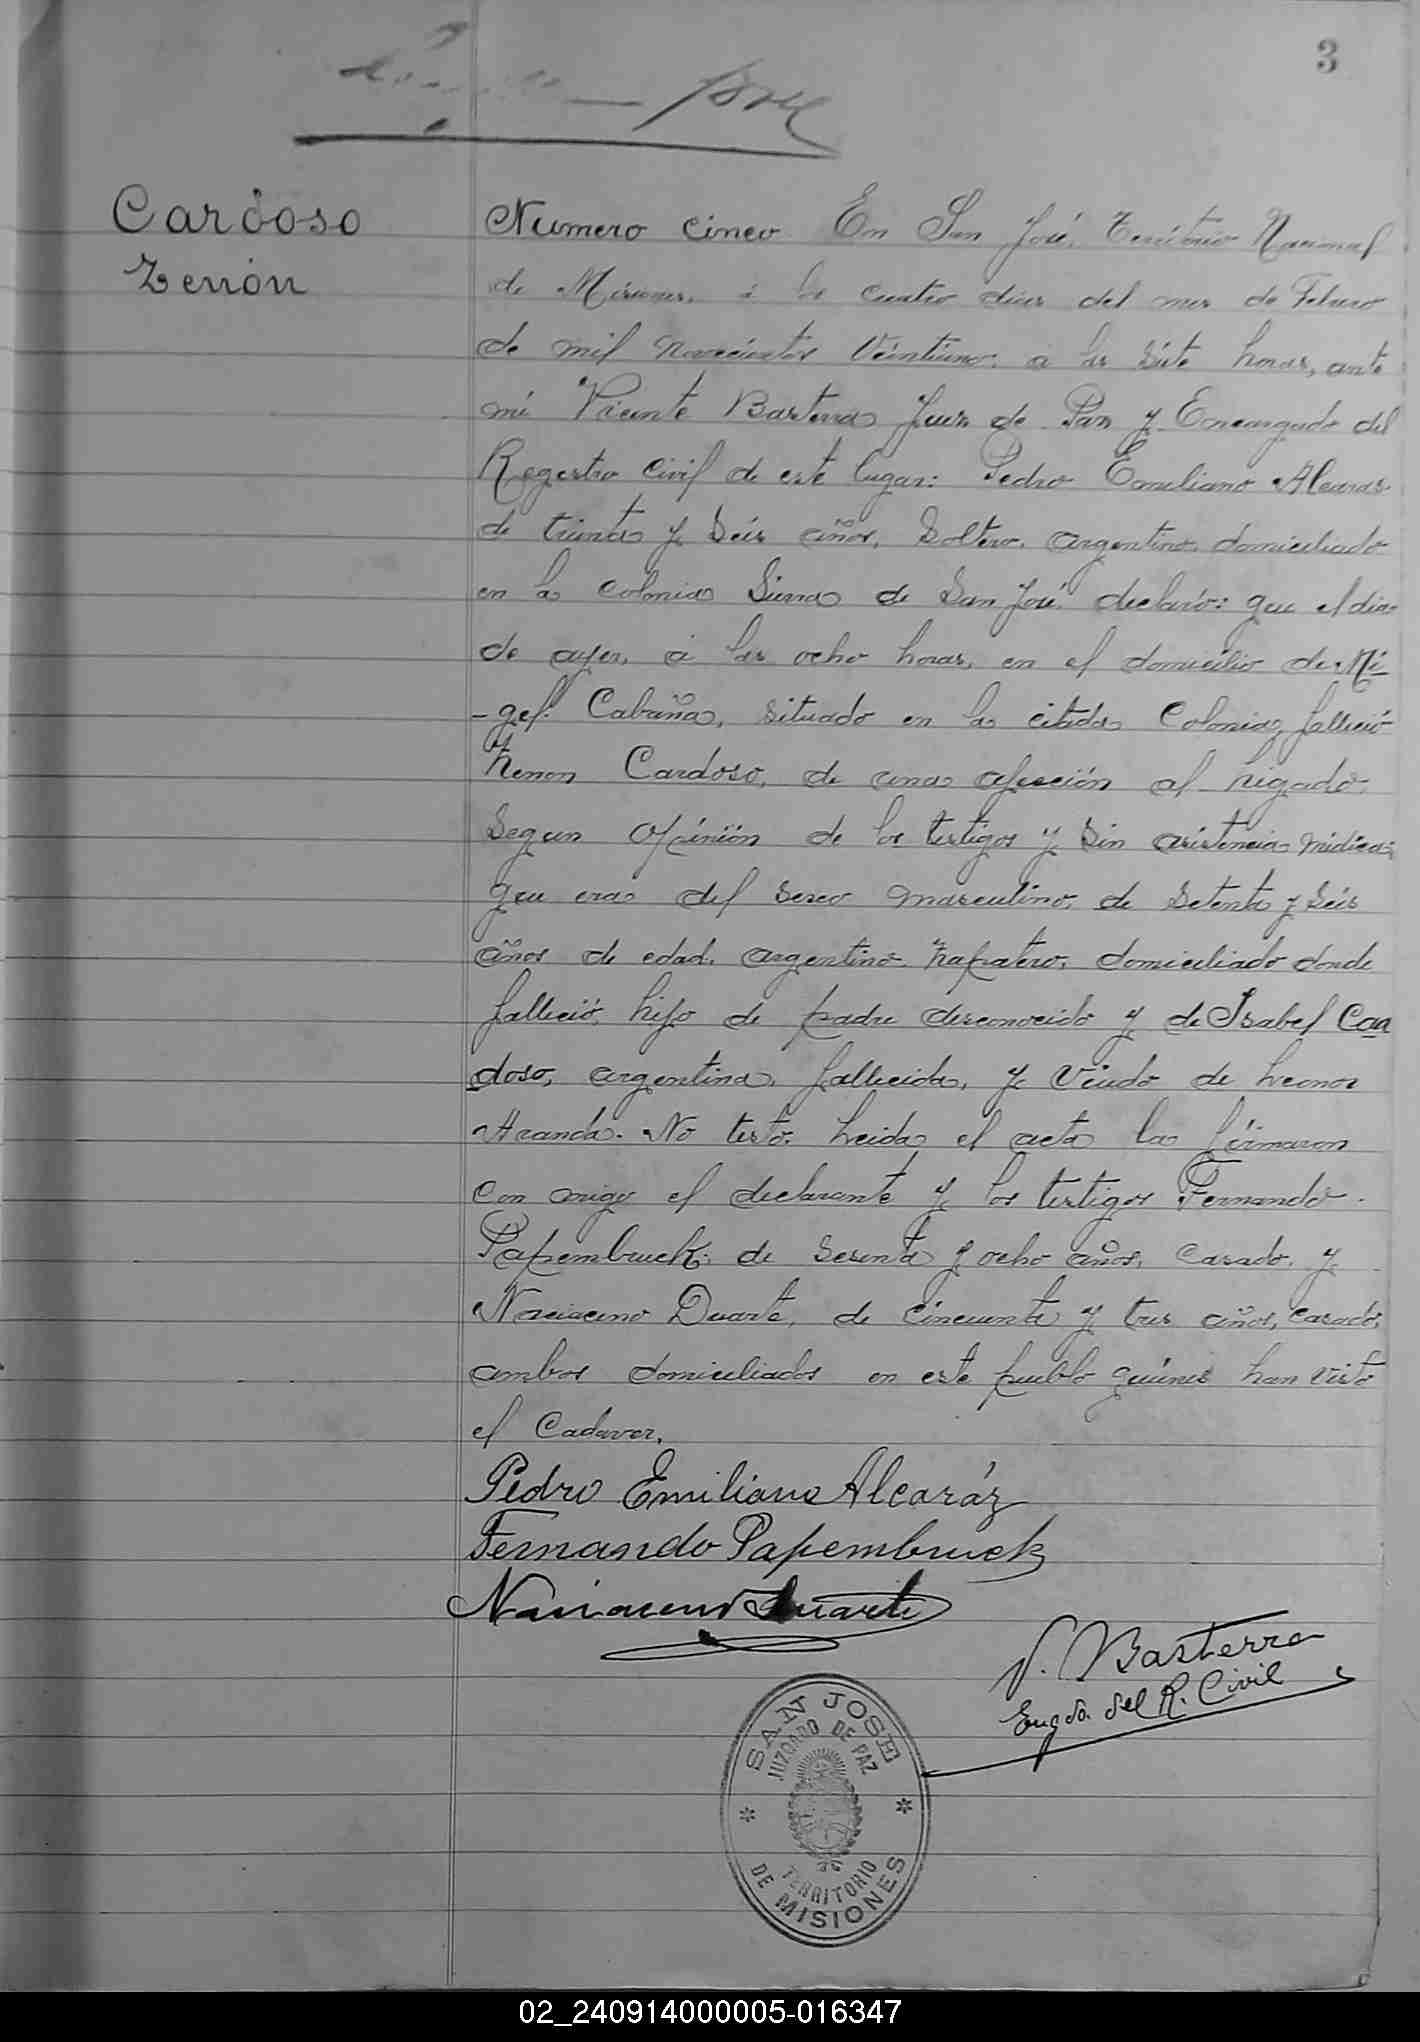 3
José
Cardoso
Zenón
Numero cinco En San José, Territorio Nacional
de Misiones, á los cuatro dias del mes de Febrero
de mil novecientos veintiuno, á las siete horas, ante
mi Vicente Basterra Juez de Paz y Encargado del
Registro Civil de este lugar: Pedro Emiliano Alcaras
de treinta y seis años, soltero, argentino, domiciliado
en la colonia Sierra de San José declaró: que el dia
de ayer, á las ocho horas, en el domicilio de Mi-
-gel Cabaña, situado en la citada Colonia, falleció
Zenon Cardoso, de una afección al higado,
segun opinión de los testigos y sin asistencia médica;
que era del sexo masculino, de setenta y seis
años de edad, argentino, zapatero, domiciliado donde
falleció, hijo de padre desconocido y de Isabel Car
doso, argentina, fallecida, y viudo de Leonor
Aranda. No testó. Leida el acta la firmaron
con migo el declarante y los testigos Fernando
Papembruck, de sesenta y ocho años, casado, y
Narciaceno Duarte, de cincuenta y tres años, casado,
ambos domiciliados en este pueblo quienes han visto
el Cadaver.
Pedro Emiliano Alcaráz
Fernando Papembruck
Duarte
V. Basterra
Engdo. del R. Civil
SAN JOSE
JUZGADO DE PAZ
TERRITORIO
DE MISIONES
02_240914000005-016347